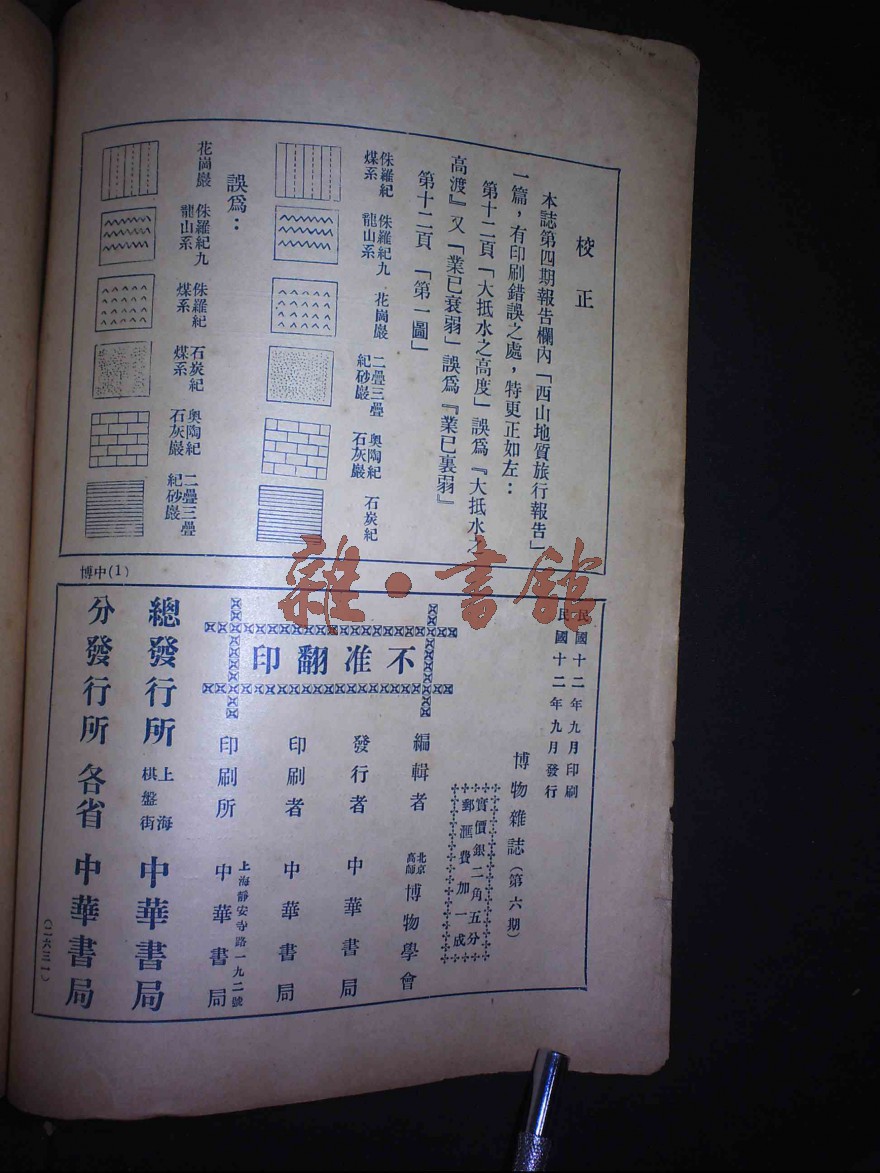 校正
本誌第四期報告欄內「西山地質旅行報告」
一篇，有印刷錯誤之處，特更正如左：
第十二頁「大抵水之高度」誤爲『大抵水之
高渡』又「業已衰弱」誤爲『業已裏弱』
第十二頁「第一圖」
侏羅紀煤系
侏羅紀九龍山系
花崗巖
二疊三疊紀砂巖
奥陶紀石灰巖
石炭紀
誤爲：
花崗巖
侏羅紀九龍山系
侏羅紀煤系
石炭紀煤系
奥陶紀石灰巖
二疊三疊紀砂巖
博中(1)
民國十二年九月印刷
民國十二年九月發行
博物雜誌（第六期）
實價銀二角五分
郵滙費加一成
不准翻印
編輯者 北京高師 博物學會
發行者 中華書局
印刷者 中華書局
印刷所 上海靜安寺路一九二號 中華書局
總發行所 上海棋盤街 中華書局
分發行所 各省 中華書局
（二六三一）
雜·書館